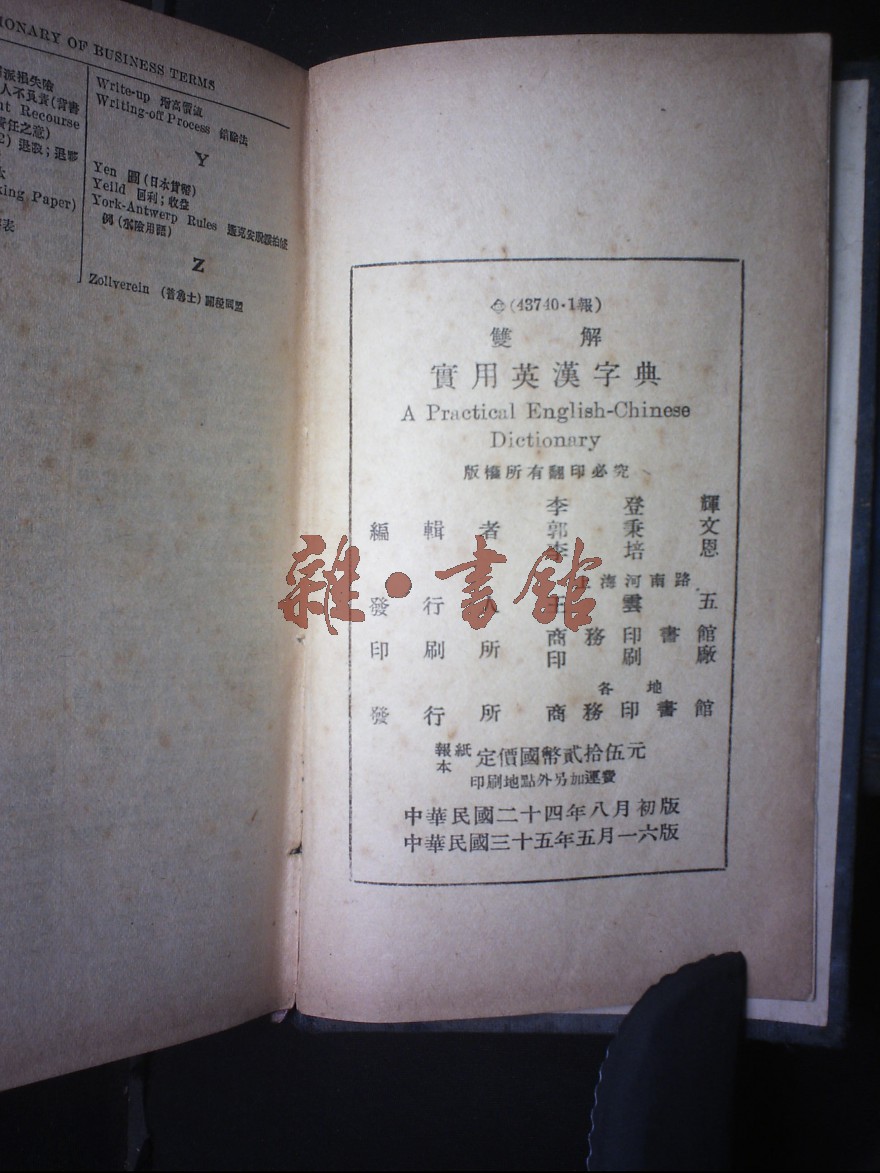 IONARY OF BUSINESS TERMS
人不負責(背書
nt Recourse
責任之意)
king Paper)
Write-up 增高價值
Writing-off Process 銷除法
Y
Yen 圓(日本貨幣)
Yeild 回利;收益
York-Antwerp Rules
例(水險用語)
Z
Zollverein 關稅同盟
(43740·1報)
雙 解
實用英漢字典
A Practical English-Chinese
Dictionary
版權所有翻印必究
編輯者 李登輝
郭秉文
李培恩
上海河南路
發行人 王雲五
印刷所 商務印書館
印刷廠
各地
發行所 商務印書館
報紙本 定價國幣貳拾伍元
印刷地點外另加運費
中華民國二十四年八月初版
中華民國三十五年五月一六版
雜·書館